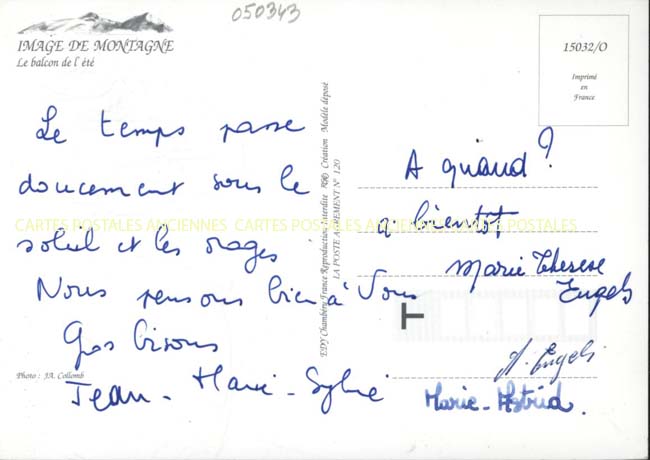 050343
IMAGE DE MONTAGNE
Le balcon de l'été
15032/O
Imprimé
en
France
Le temps passe
doucement sous le
soleil et les orages
Nous pensons bien à Vous
Gros bisous
Jean - Marie - Sylvie
A quand ?
à bientôt
Marie Therese
Engels
A. Engels
Marie - Astrid.
EDY Chambéry France Reproduction interdite Création Modèle déposé
LA POSTE AGREMENT N° 120
T
Photo : J.A. Collomb
CARTES POSTALES ANCIENNES CARTES POSTALES ANCIENNES CARTES POSTALES